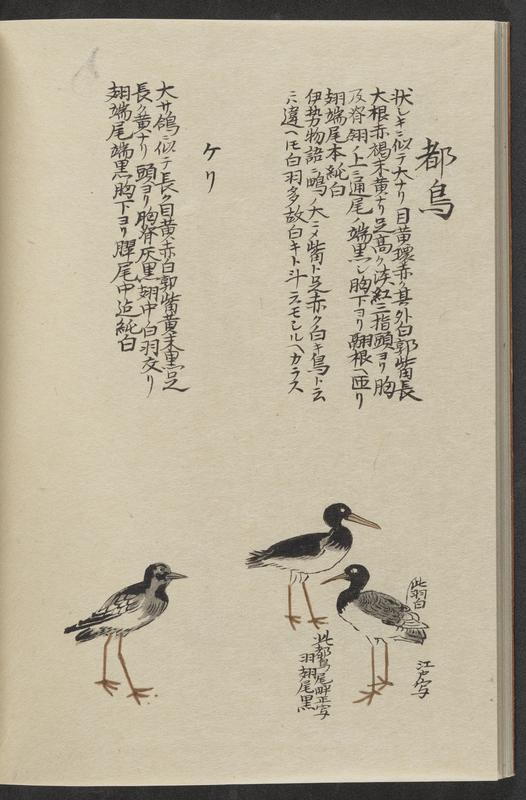 都鳥
状シギニ似テ大ナリ目黄環赤ク其外白郭觜長
大根赤褐末黄ナリ足高ク淡紅三指頭ヨリ胸
及脊翅ノ上ニ通尾ノ端黒シ胸下ヨリ翮根ヘ匝リ
翅端尾本純白
伊勢物語ニ鴫ノ大ニメ觜ト足赤ク白キ鳥ト云
ニ違ヘ𪜈白羽多故白キト斗 モシルヘカラス
ケリ
大サ鴿ニ似テ長ク目黄赤白郭觜黄末黒足
長ク黄ナリ頭ヨリ胸脊灰黒翅中白羽交リ
翅端尾端黒胸下ヨリ 尾中迠純白
此羽白
江戸写
此都鳥尾畔正写
羽翅尾黒